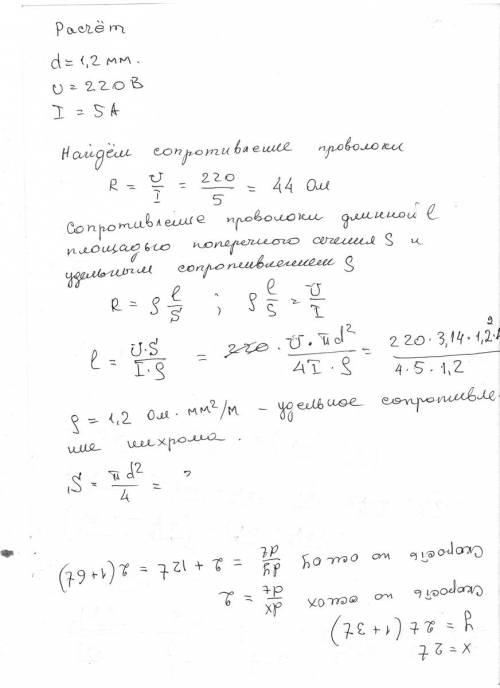 Расчёт
d = 1,2 мм.
U = 220 В
I = 5 А
Найдём сопротивление проволоки
R = U/I = 220/5 = 44 Ом
Сопротивление проволоки длинной l
площадью поперечного сечения S и
удельным сопротивлением ρ
R = ρ l/S ; ρ l/S = U/I
l = U·S/I·ρ = U·πd²/4I·ρ = 220·3,14·1,2²/4·5·1,2
ρ = 1,2 Ом·мм²/м – удельное сопротивле-
ние нихрома.
S = πd²/4 =
x = 2t
y = 2t (1+3t)
Скорость по оси ox dx/dt = 2
Скорость по оси oy dy/dt = 2 + 12t = 2(1+6t)